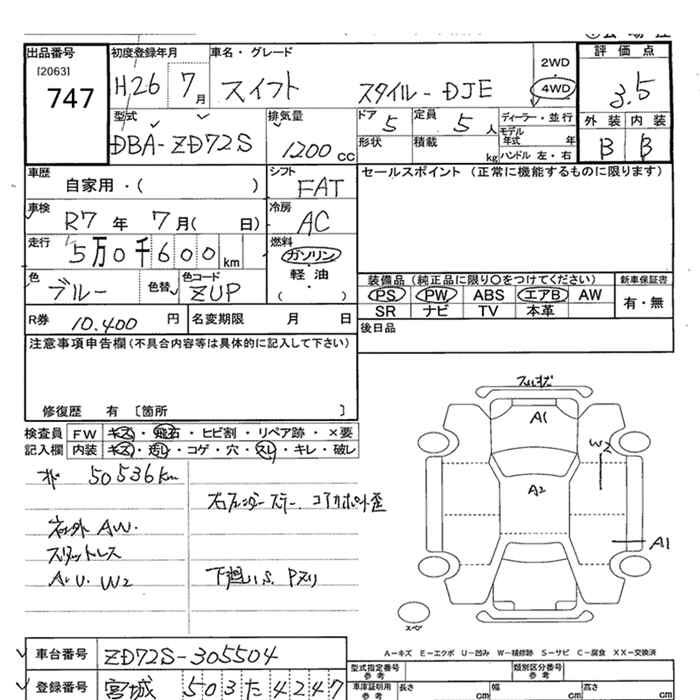 出品番号
[2063]
747
初度登録年月
H.26 7月
車名・グレード
スイフト スタイル-DJE
2WD
4WD
評価点
3.5
外装 内装
B B
型式
DBA-ZD72S
排気量
1200 cc
ドア 5
定員 5 人
形状
積載 kg
ディーラー・並行
モデル年式 年
ハンドル 左・右
車歴
自家用・( )
シフト
FAT
セールスポイント (正常に機能するものに限ります)
車検
R7 年 7 月( 日)
冷房
AC
走行
5万0千600 km
燃料
ガソリン
軽油
( )
色
ブルー
色替
色コード
ZUP
装備品 (純正品に限り〇をつけてください)
新車保証書
PS PW ABS エアB AW
SR ナビ TV 本革
有・無
R券 10.400 円
名変期限 月 日
後日品
注意事項申告欄(不具合内容等は具体的に記入して下さい)
修復歴 有 〔箇所 〕
検査員
記入欄
FW キズ・飛石・ヒビ割・リペア跡・×要
内装 キズ・汚レ・コゲ・穴・スレ・キレ・破レ
50536km
社外 AW.
スタットレス
A.U. W2
右フェンダーステー、コアサポート歪
下廻りS. Pヌリ
A1
W2
A2
A1
スペア
A-キズ E-エクボ U-凹み W-補修跡 S-サビ C-腐食 XX-交換済
車台番号 ZD72S-305504
登録番号 宮城 503 た 4247
型式指定番号 参考
類別区分番号 参考
車庫証明用 参考
長さ cm
幅 cm
高さ cm